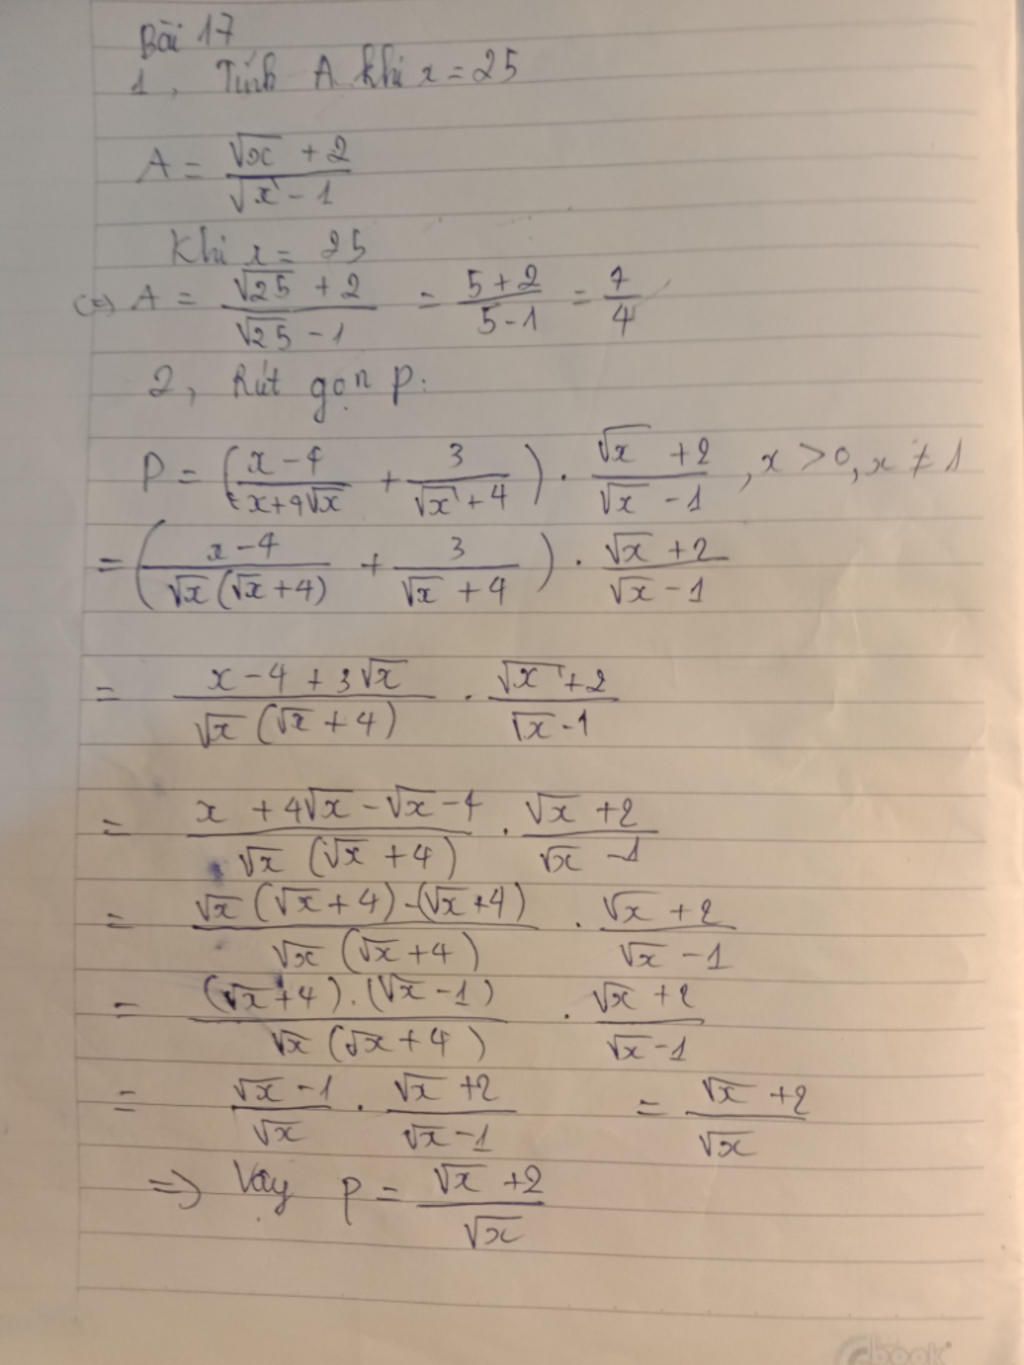 Bài 17
1, Tính A khi x = 25
A = (√x + 2)/(√x - 1)
Khi x = 25
(=) A = (√25 + 2)/(√25 - 1) = (5+2)/(5-1) = 7/4
2, Rút gọn P:
P = ((x-4)/(x+4√x) + 3/(√x+4)) . (√x + 2)/(√x - 1), x > 0, x ≠ 1
= ((x-4)/(√x(√x+4)) + 3/(√x+4)) . (√x+2)/(√x-1)
= (x-4+3√x)/(√x(√x+4)) . (√x+2)/(√x-1)
= (x+4√x-√x-4)/(√x(√x+4)) . (√x+2)/(√x-1)
= (√x(√x+4)-(√x+4))/(√x(√x+4)) . (√x+2)/(√x-1)
= ((√x+4).(√x-1))/(√x(√x+4)) . (√x+2)/(√x-1)
= (√x-1)/√x . (√x+2)/(√x-1) = (√x+2)/√x
=> Vậy P = (√x+2)/√x
book